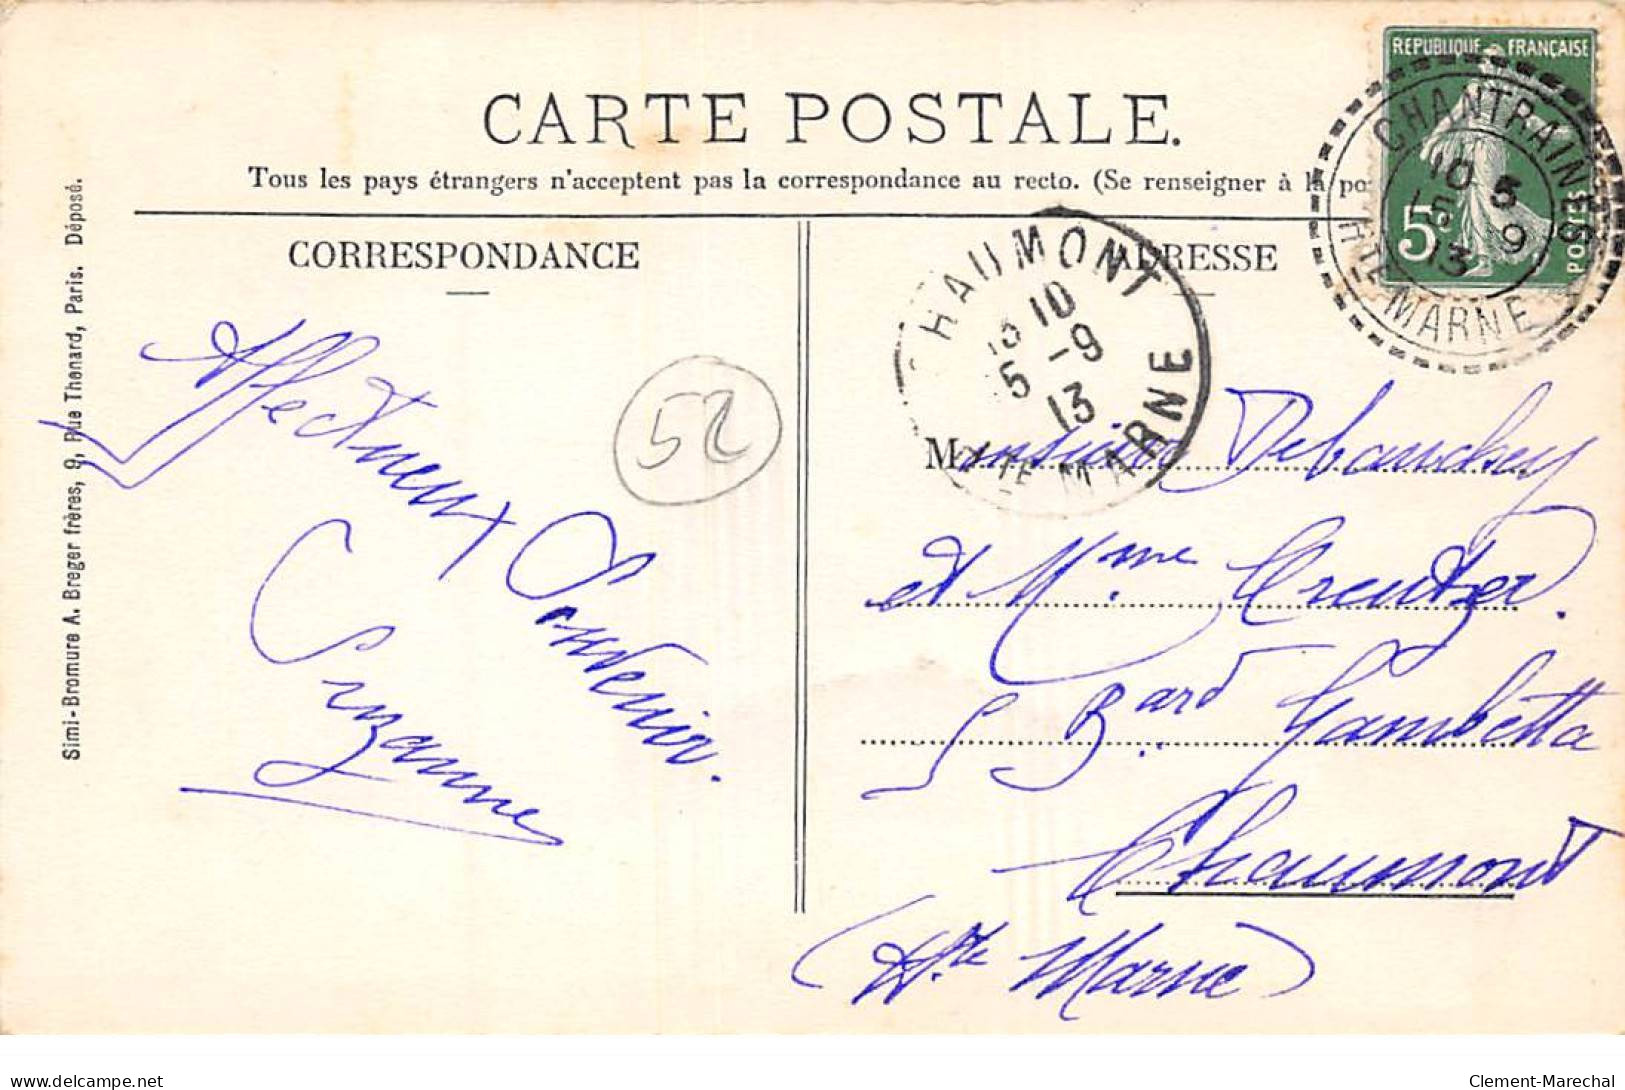 CARTE POSTALE.
Tous les pays étrangers n'acceptent pas la correspondance au recto. (Se renseigner à la po
CORRESPONDANCE
ADRESSE
REPUBLIQUE FRANÇAISE
5c
POSTES
CHANTRAINES
10 5
15 9
13
HTE MARNE
CHAUMONT
10
15 -9
5 13
HTE MARNE
Affectueux Souvenir.
Suzanne
52
Monsieur Debauchey
et Mme Creutzer.
5 Bard Gambetta
Chaumont
(Hte Marne)
Simi-Bromure A. Breger frères, 9, Rue Thenard, Paris. Déposé.
delcampe.net
Clement-Marechal